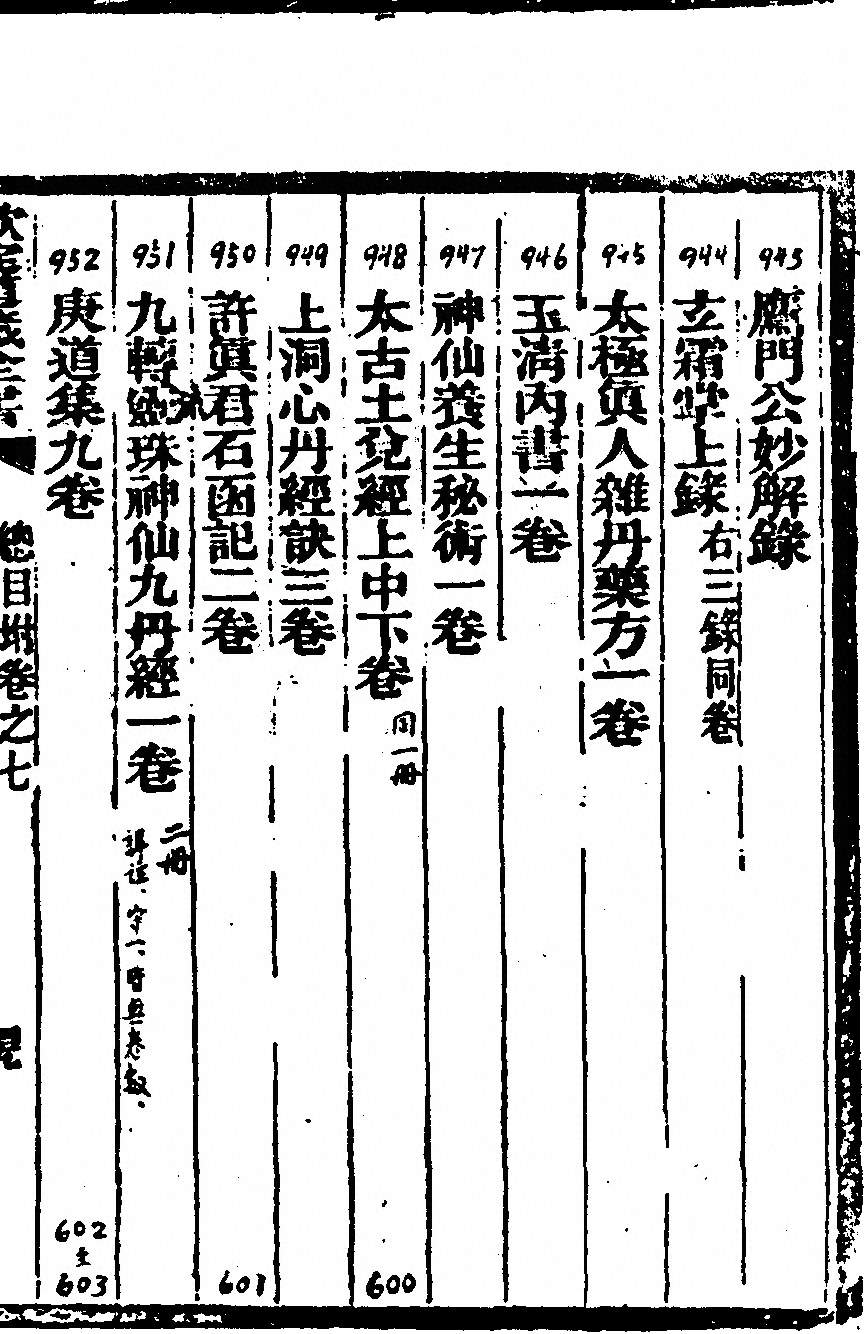 943 鴈門公妙解錄
944 玄霜掌上錄 右三錄同卷
945 太極眞人雜丹藥方一卷
946 玉淸內書一卷
947 神仙養生秘術一卷
948 太古土兌經上中下卷 同一冊
600
949 上洞心丹經訣三卷
950 許眞君石函記二卷
601
951 九轉靈珠神仙九丹經一卷
二冊
952 庚道集九卷
602
至
603
總目坿卷之七